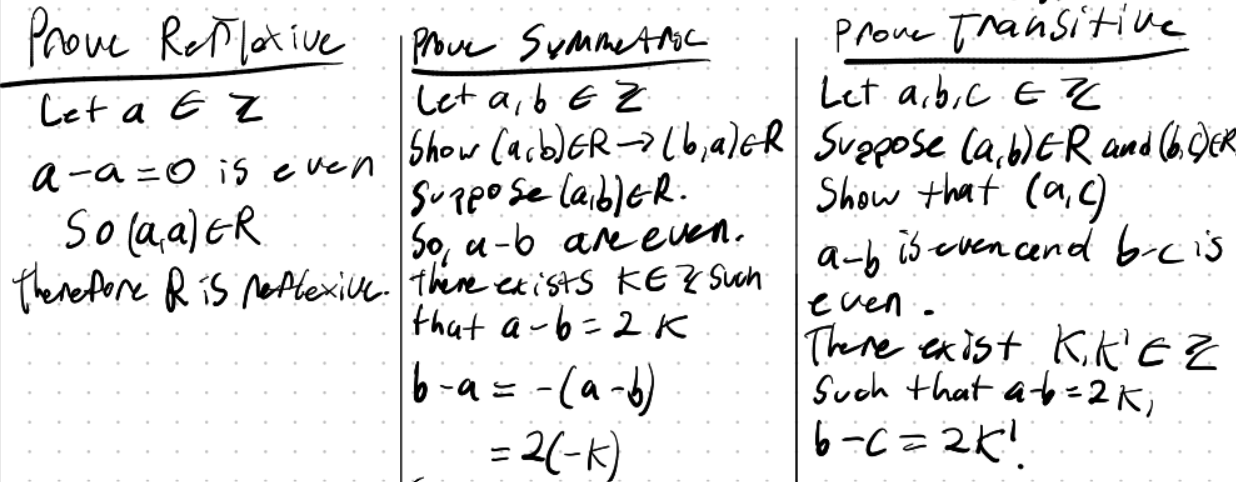 Prove Reflexive
Let a ∈ ℤ
a-a=0 is even
So (a,a)∈R
therefore R is reflexive.
Prove Symmetric
Let a,b ∈ ℤ
Show (a,b)∈R→(b,a)∈R
Suppose (a,b)∈R.
So, a-b are even.
there exists K∈ℤ such
that a-b=2K
b-a = -(a-b)
= 2(-K)
Prove Transitive
Let a,b,c ∈ ℤ
Suppose (a,b)∈R and (b,c)∈R
Show that (a,c)
a-b is even and b-c is
even.
There exist K,K' ∈ ℤ
Such that a-b=2K,
b-c=2K'.